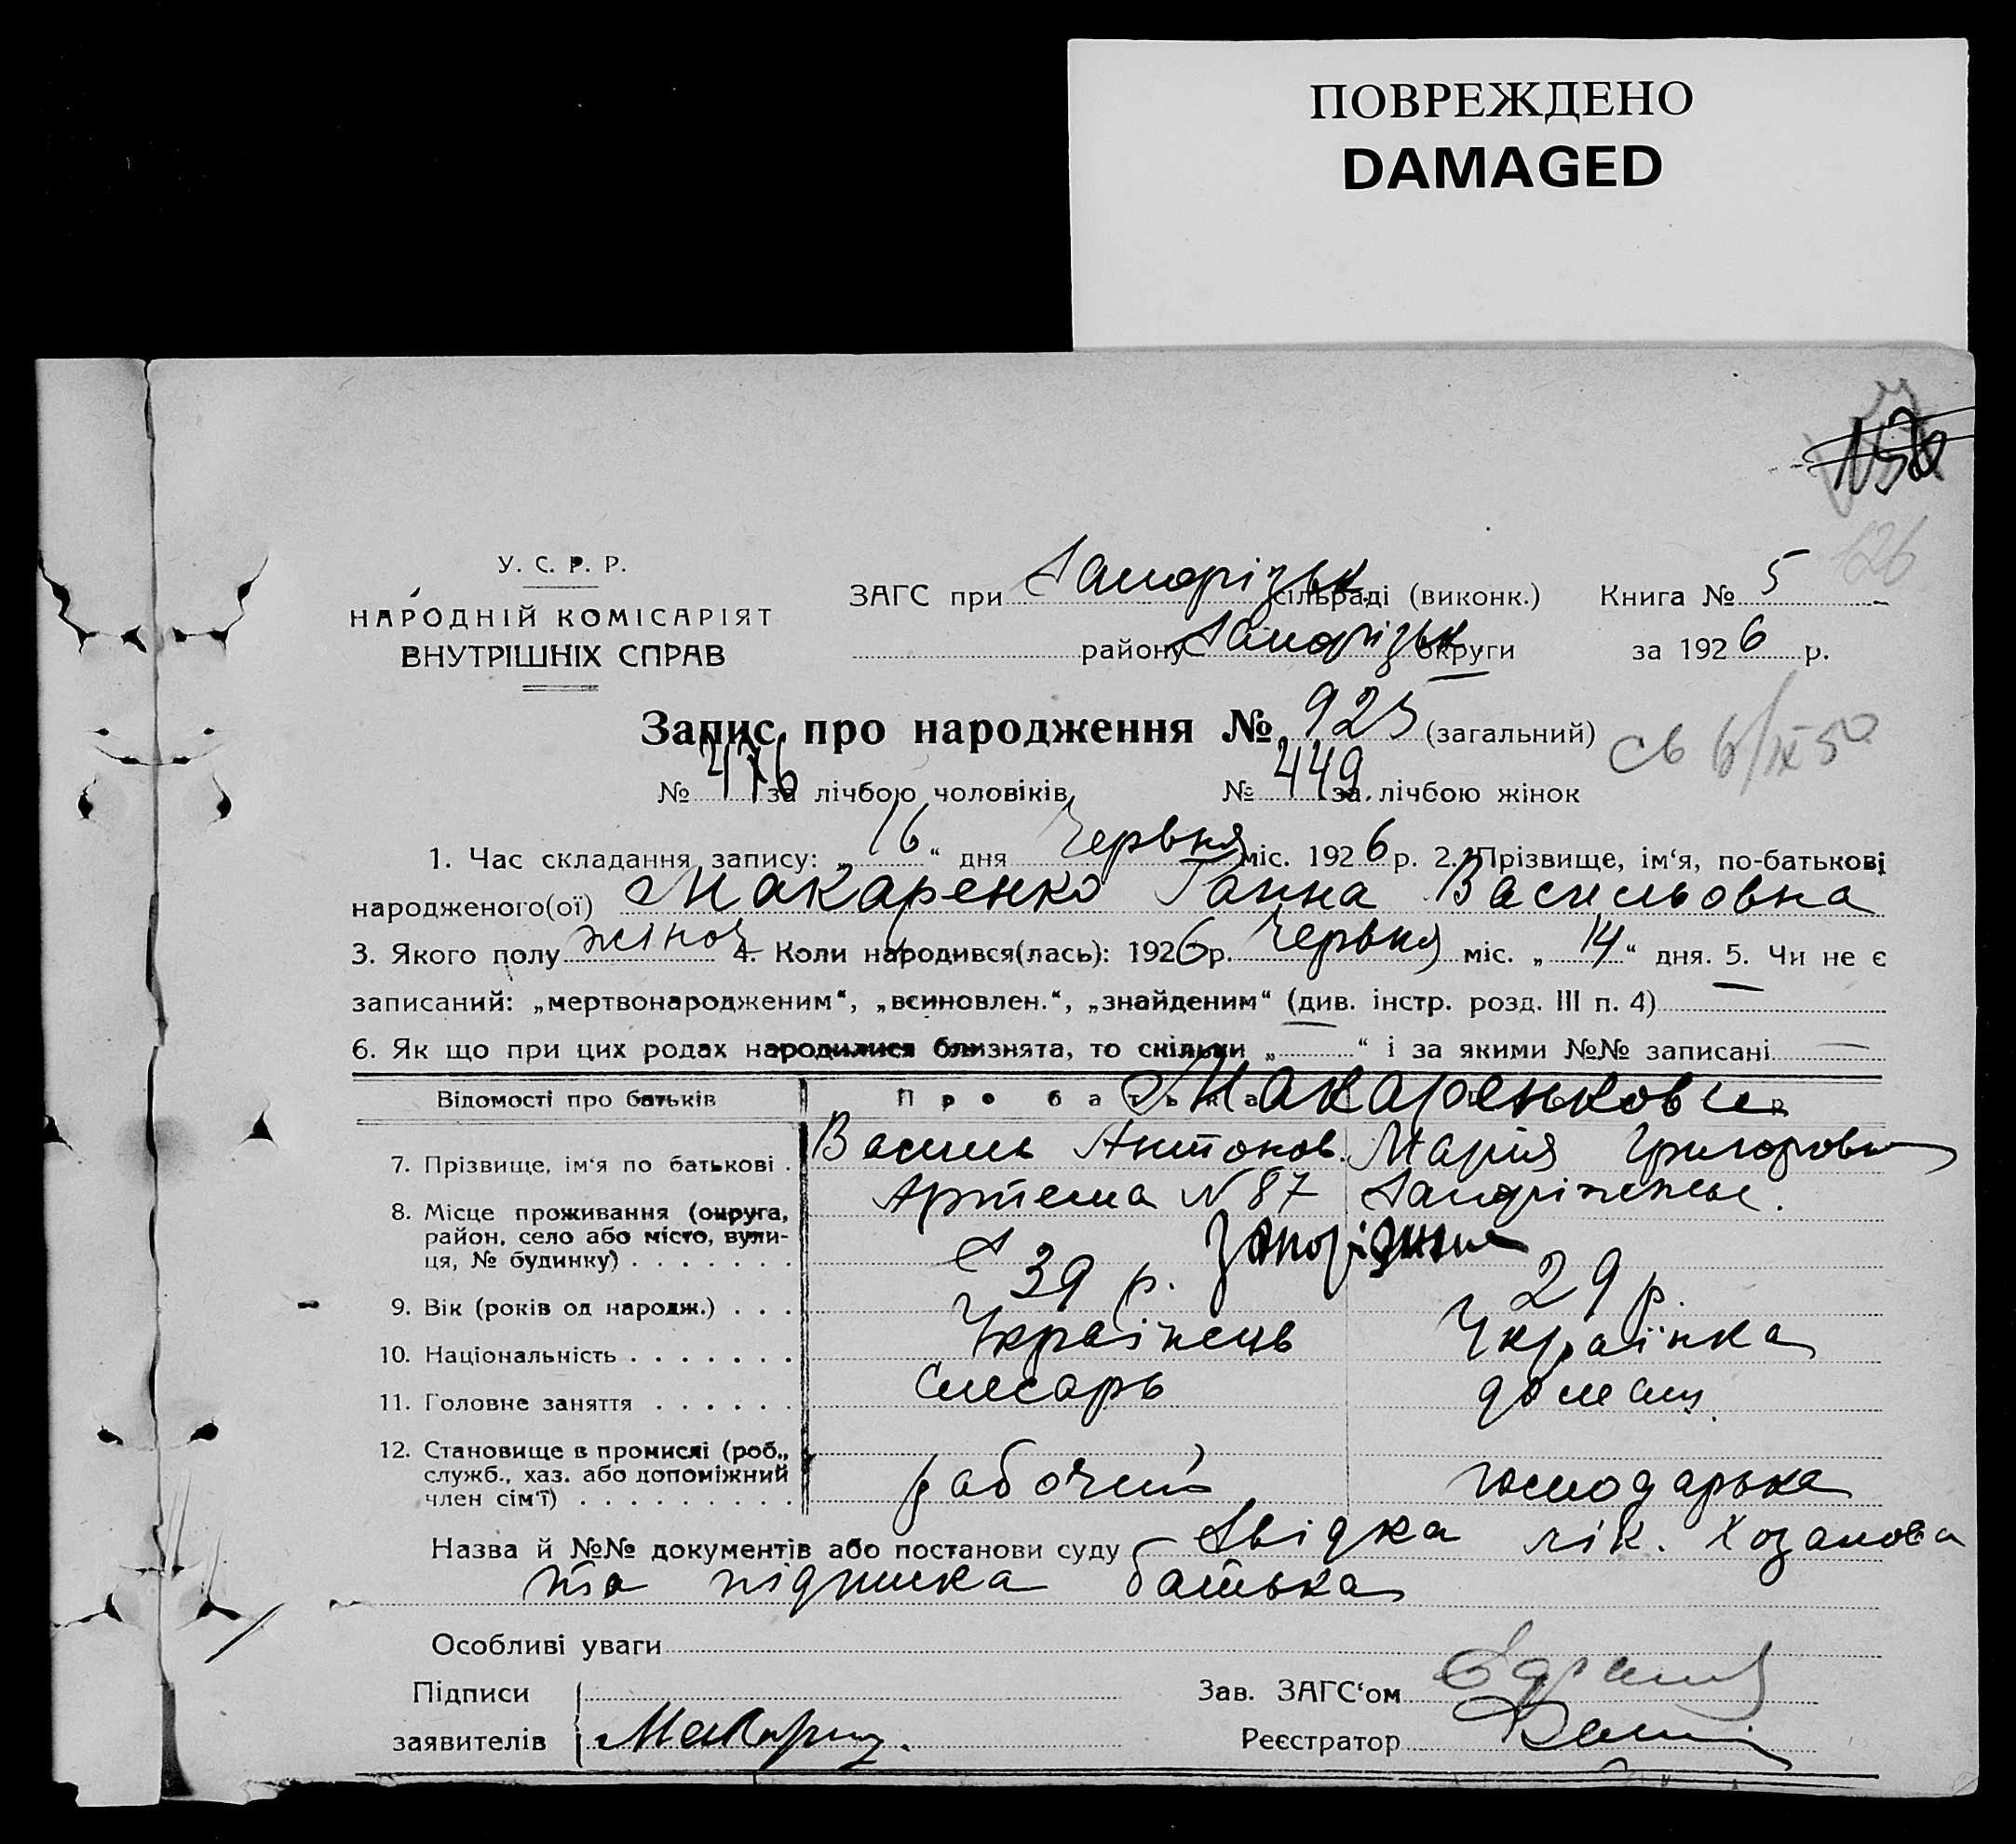 ПОВРЕЖДЕНО
DAMAGED
126
У. С. Р. Р.
НАРОДНІЙ КОМІСАРІЯТ
ВНУТРІШНІХ СПРАВ
ЗАГС при Запорізьк сільраді (виконк.) Книга № 5
району Запорізьк округи за 1926 р.
Запис про народження № 925 (загальний)
№ 476 за лічбою чоловіків № 449 за лічбою жінок
1. Час складання запису: „16“ дня Червня міс. 1926 р. 2. Прізвище, ім‘я, по-батькові
народженого(ої) Макаренко Ганна Васильовна
3. Якого полу жіноч 4. Коли народився(лась): 1926 р. Червня міс. „14“ дня. 5. Чи не є
записаний: „мертвонародженим“, „всиновлен.“, „знайденим“ (див. інстр. розд. III п. 4)
6. Як що при цих родах народилися близнята, то скільки „ “ і за якими №№ записані
Відомості про батьків Про батька Макаренкови
7. Прізвище, ім‘я по батькові Василь Антонов. Мария Григоровн
8. Місце проживання (округа, район, село або місто, вулиця, № будинку) Артема N 87 Запоріжжье.
Запоріжжя
9. Вік (років од народж.) 39 р. 29 р.
10. Національність Українець Українка
11. Головне заняття Слесарь домаш.
12. Становище в промислі (роб., служб., хаз. або допоміжний член сім‘ї) рабочий господарька
Назва й №№ документів або постанови суду Звідка лік. Хозанова
та підписка батька
Особливі уваги
Підписи
заявителів
Зав. ЗАГС‘ом
Реєстратор